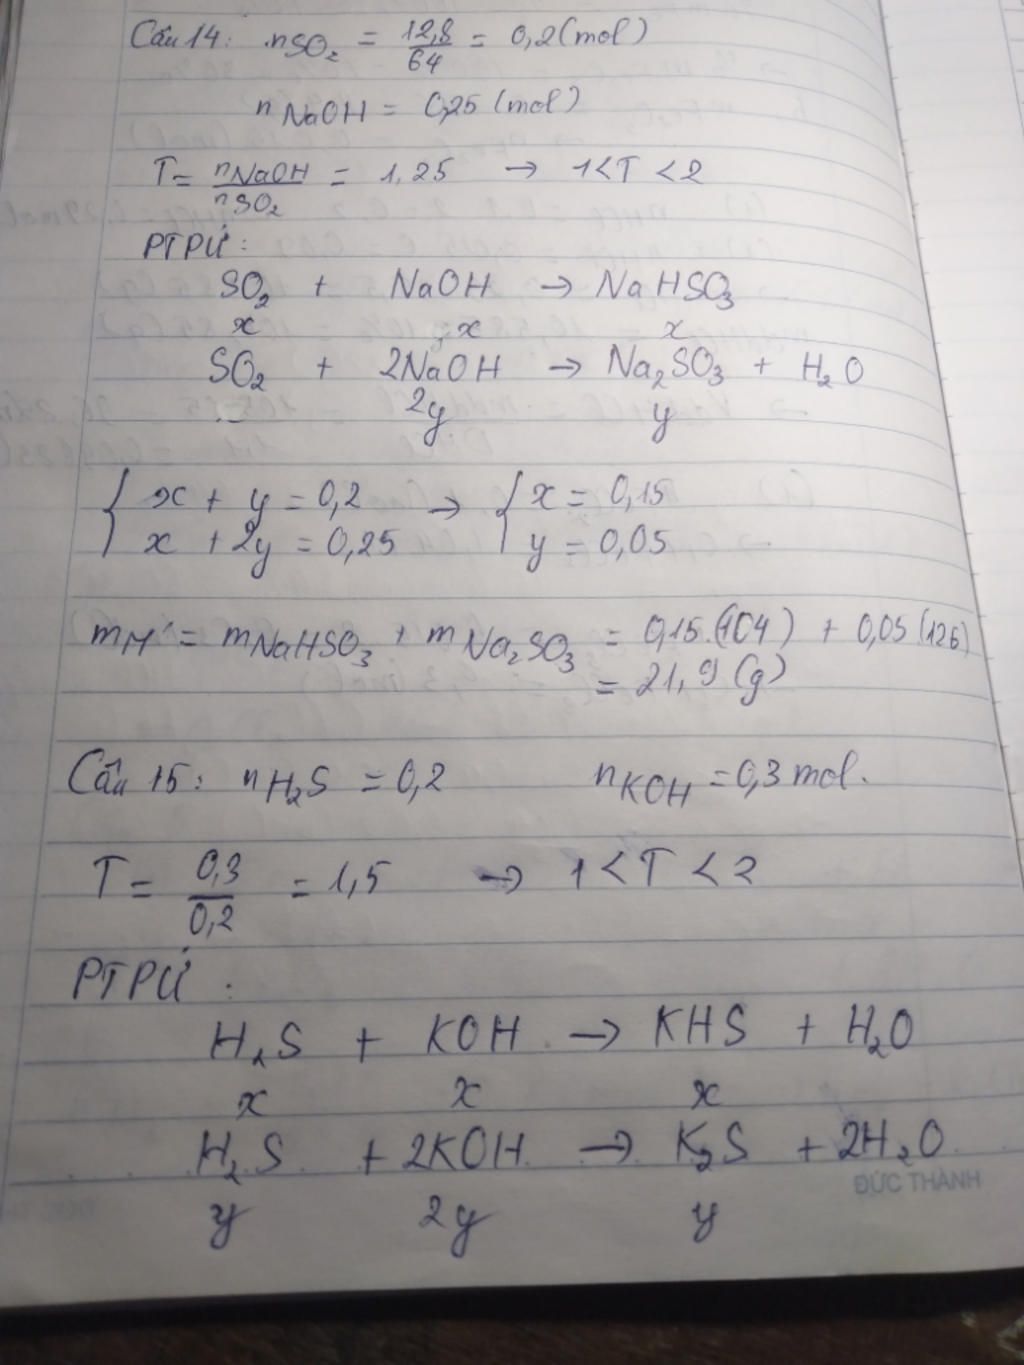 Câu 14: nSO₂ = 12,8/64 = 0,2 (mol)
nNaOH = 0,25 (mol)
T = nNaOH/nSO₂ = 1,25 → 1 < T < 2
PTPỨ:
SO₂ + NaOH → NaHSO₃
x x x
SO₂ + 2NaOH → Na₂SO₃ + H₂O
2y y
{ x + y = 0,2 → { x = 0,15
x + 2y = 0,25 y = 0,05
mM' = mNaHSO₃ + mNa₂SO₃ = 0,15.(104) + 0,05(126)
= 21,9 (g)
Câu 15: nH₂S = 0,2 nKOH = 0,3 mol.
T = 0,3/0,2 = 1,5 → 1 < T < 2
PTPỨ:
H₂S + KOH → KHS + H₂O
x x x
H₂S + 2KOH → K₂S + 2H₂O
ĐỨC THÀNH
y 2y y